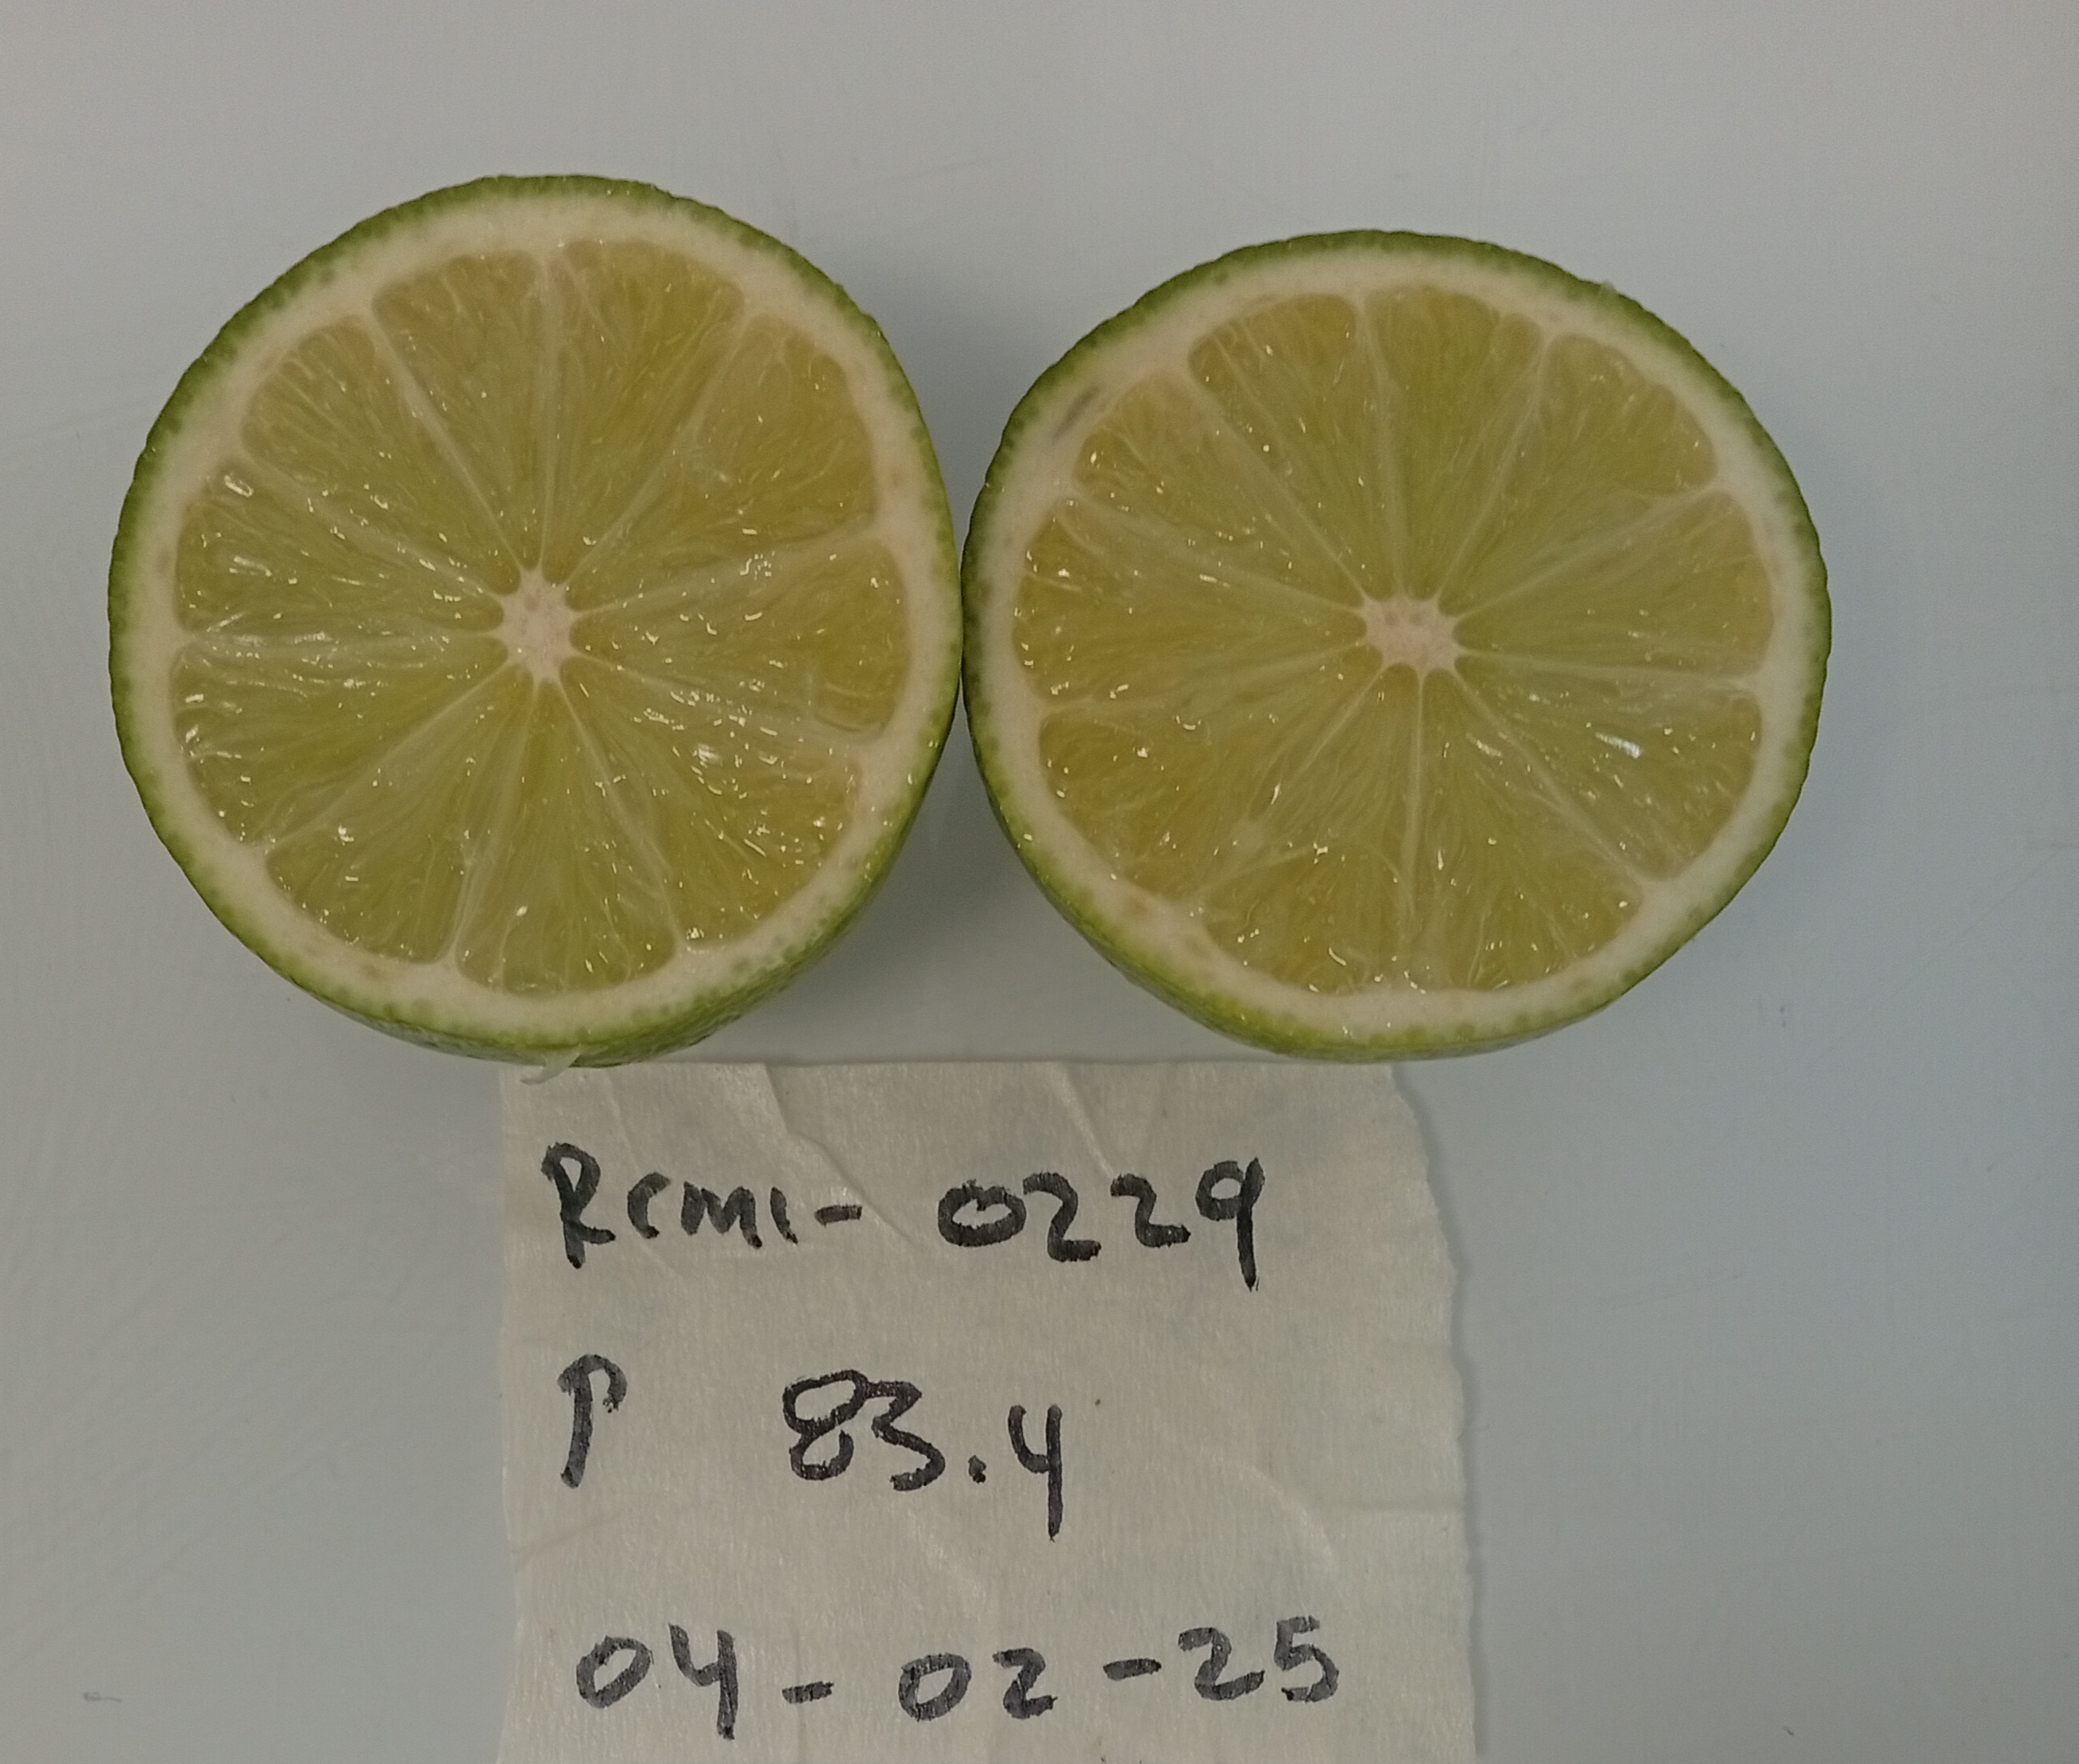 Rcmi- 0229
P 83.4
04-02-25